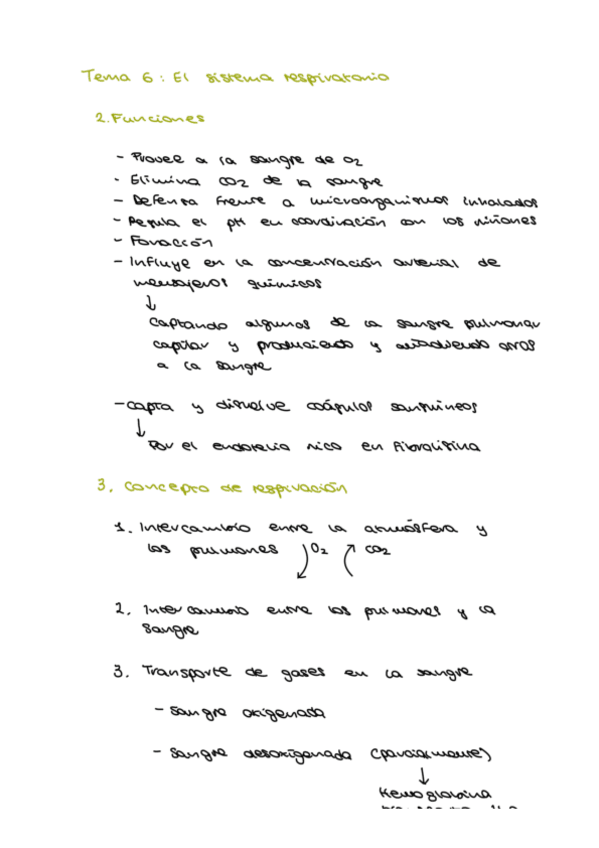 Tema 6: El sistema respiratorio
2. Funciones
- Provee a la sangre de O2
- Elimina CO2 de la sangre
- Defensa frente a microorganismos inhalados
- Regula el pH en coordinación con los riñones
- Fonación
- Influye en la concentración arterial de
mensajeros químicos
↓
Captando algunos de la sangre pulmonar
capilar y produciendo y añadiendo otros
a la sangre
- Capta y disuelve coágulos sanguíneos
↓
Por el endotelio rico en fibrolisina
3. Concepto de respiración
1. Intercambio entre la atmósfera y
los pulmones O2 CO2
2. Intercambio entre los pulmones y la
sangre
3. Transporte de gases en la sangre
- Sangre oxigenada
- Sangre desoxigenada (parcialmente)
↓
Hemoglobina